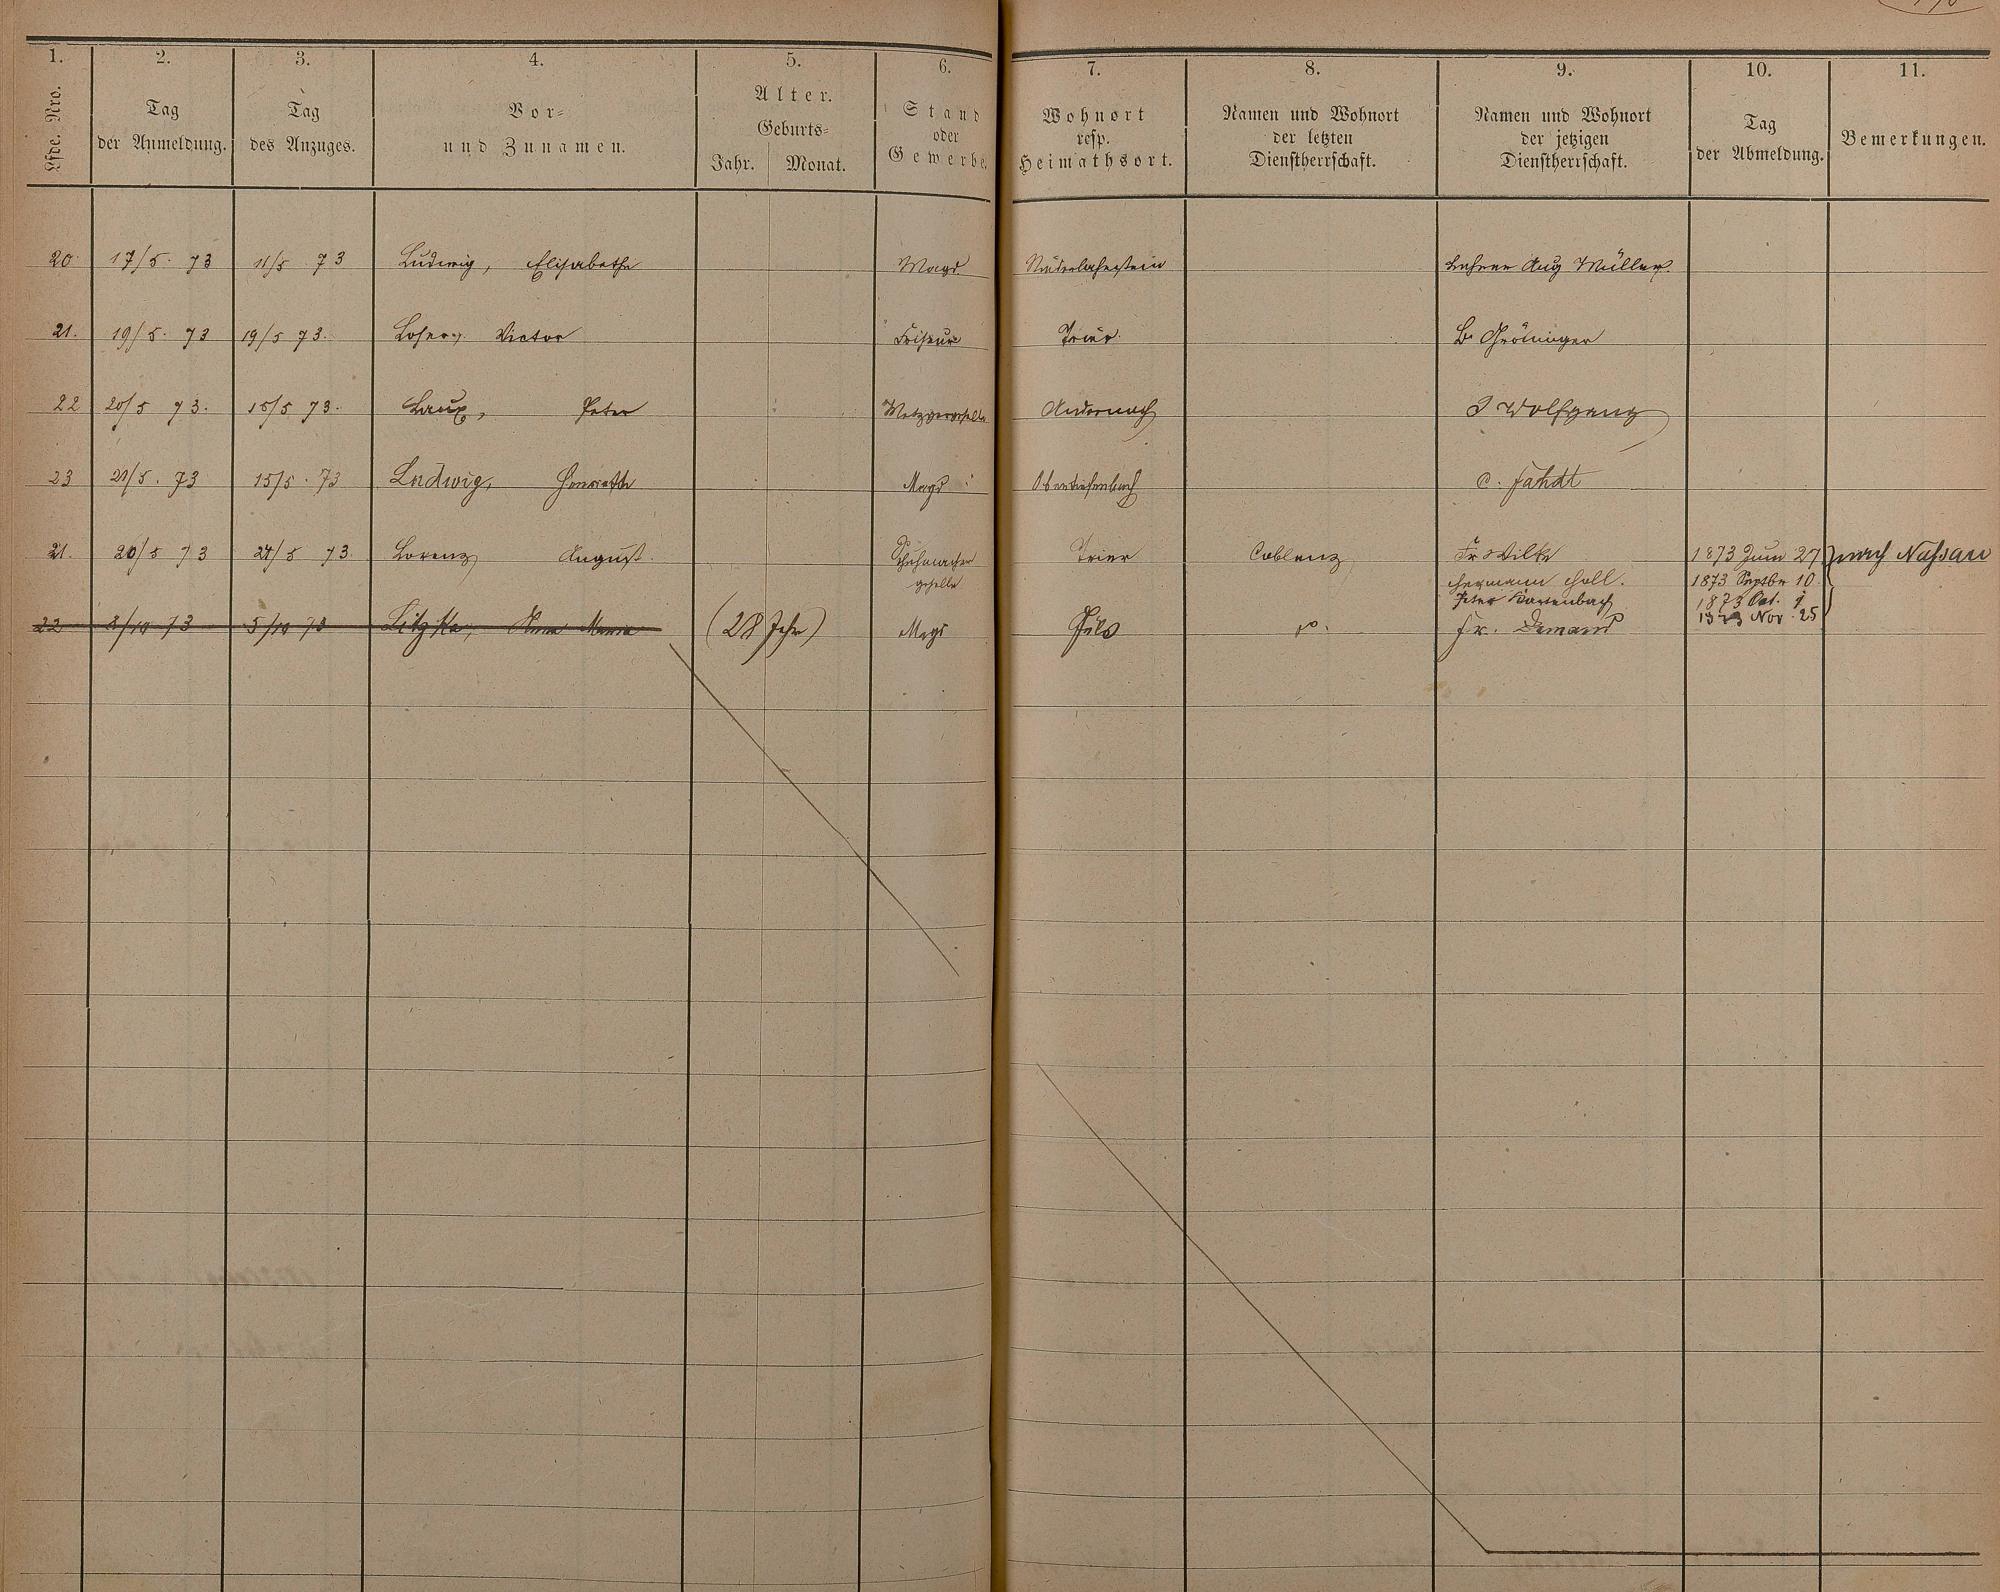 1. 2. 3. 4. 5. 6. 7. 8. 9. 10. 11.
Lfde. Nro.
Tag der Anmeldung.
Tag des Anzuges.
Vor- und Zunamen.
Alter.
Geburts-
Jahr. Monat.
Stand oder Gewerbe.
Wohnort resp. Heimathsort.
Namen und Wohnort der letzten Dienstherrschaft.
Namen und Wohnort der jetzigen Dienstherrschaft.
Tag der Abmeldung.
Bemerkungen.
20 17/5. 73 11/5 73 Ludwig, Elisabethe Magd Niederlahnstein Lehrer Aug Müller.
21. 19/5. 73 19/5 73. Victor Friseur Trier B. Gröninger
22 20/5 73. 15/5 73. Laux, Peter Metzgergeselle Andernach J Wolfgang
23 21/5. 73 15/5. 73 Ludwig, Henriette Magd Obertiefenbach C. Fahdt
21. 20/5 73 21/5 73. Lorenz August. Schuhmacher Trier Coblenz Fr Wilke 1873 Juni 27 nach Nassau
geselle Hermann Holl. 1873 Septbr 10
Peter 1873 Oct. 1
22 8/10 73 5/10 73 Anna Maria (28 Jahr) Magd Fr. Demand 1873 Nov. 25